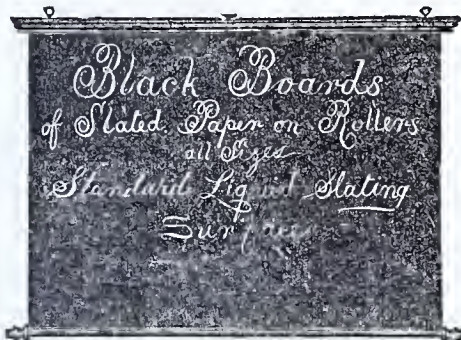 Black Boards
of Slated Paper on Rollers
all Sizes
Standard Liquid Slating
Surfaces